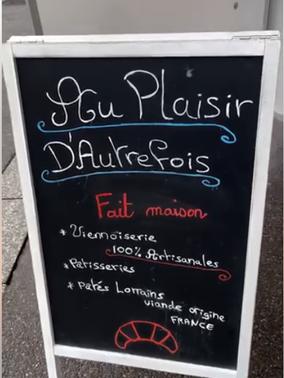 Au Plaisir
D'Autrefois
Fait maison
* Viennoiserie
100% Artisanales
* Patisseries
* patés Lorrains
viande origine
FRANCE